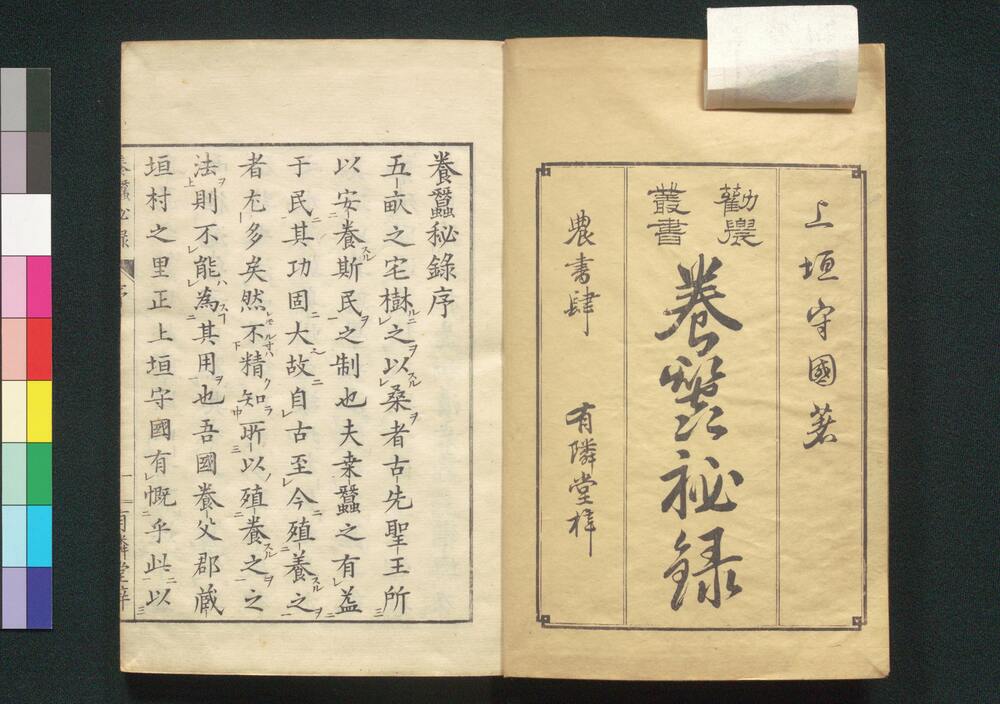 上垣守國著
勸農
叢書
養蠶祕録
農書肆 有隣堂梓
養蠶秘錄序
五畝之宅樹之以桑者古先聖王所
以安養斯民之制也夫桒蠶之有益
于民其功固大故自古至今殖養之
者尤多矣然不精知所以殖養之之
法則不能為其用也吾國養父郡蔵
垣村之里正上垣守國有慨乎此以